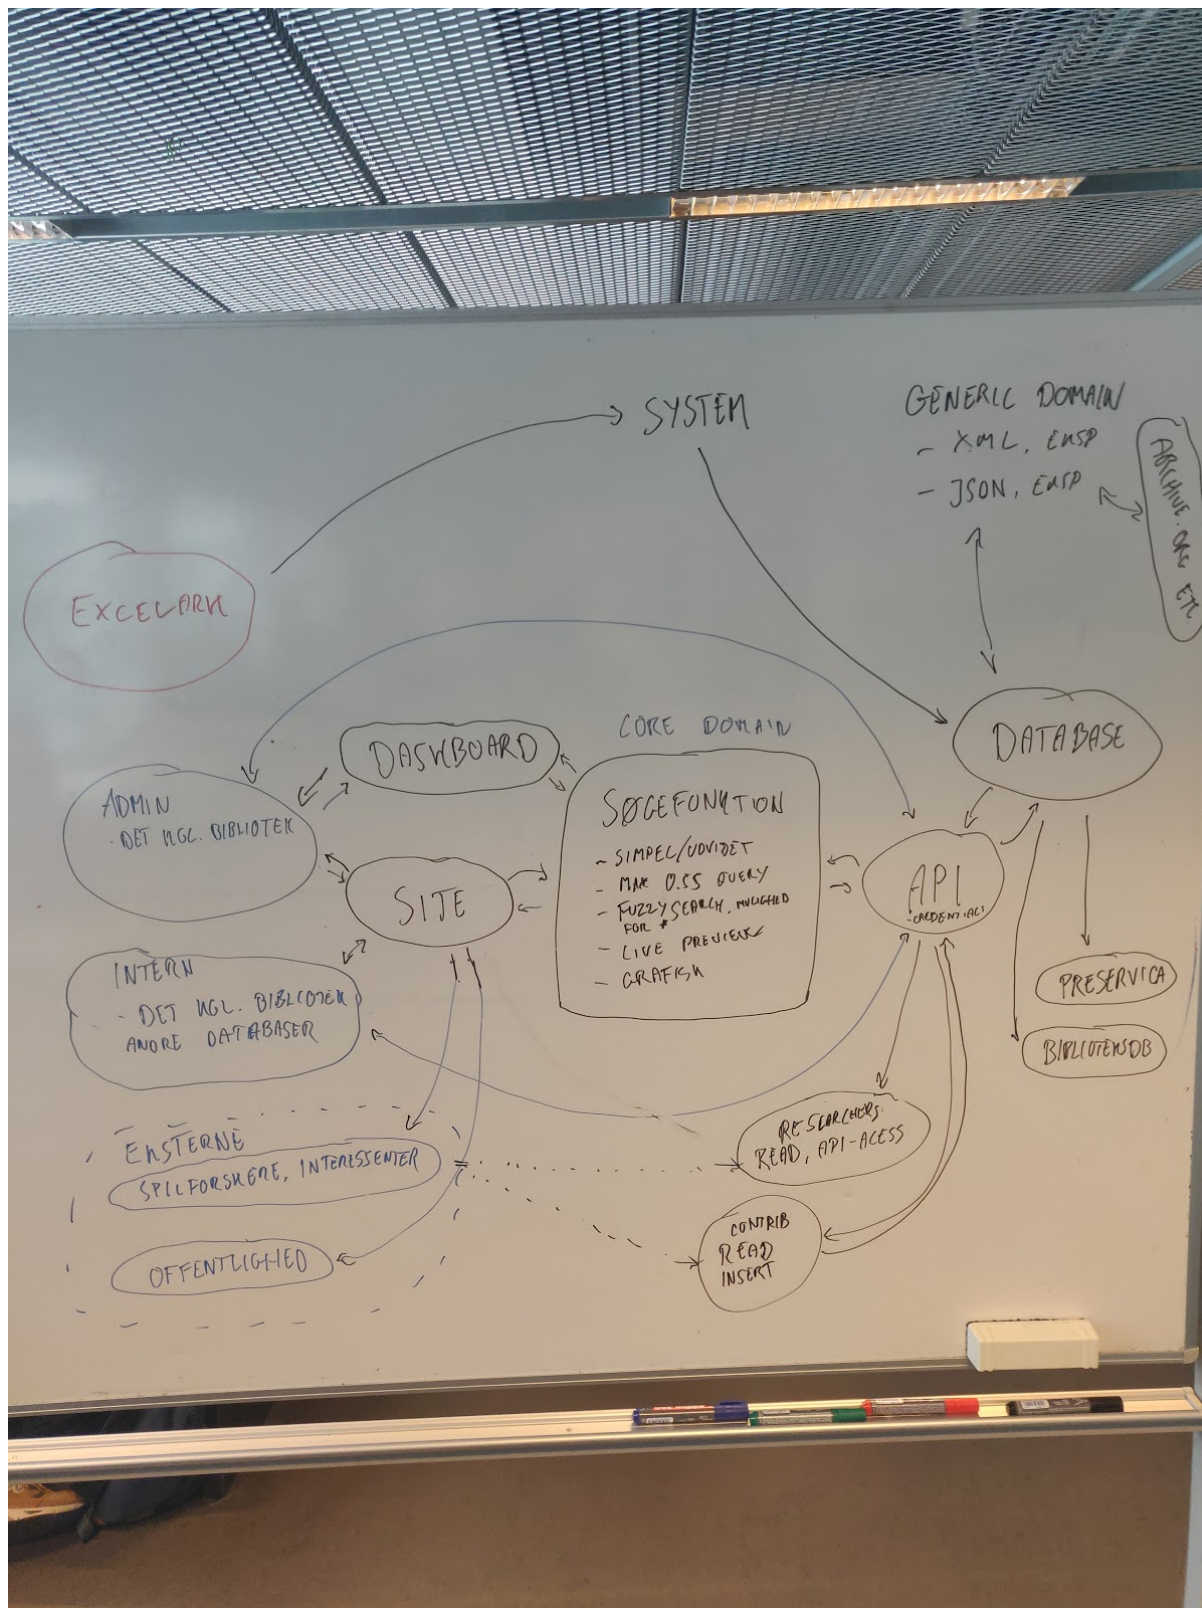 SYSTEM
GENERIC DOMAIN
- XML, EKSP
- JSON, EKSP
ARCHIVE.ORG ETC.
EXCELARK
DATABASE
CORE DOMAIN
DASHBOARD
ADMIN
- DET KGL. BIBLIOTEK
SØGEFUNKTION
- SIMPEL/UDVIDET
- MAX 0.5S QUERY
- FUZZYSEARCH. MULIGHED
FOR *
- LIVE PREVIEWS
- GRAFISK
SITE
API
-CREDENTIALS
INTERN
- DET KGL. BIBLIOTEK
ANDRE DATABASER
PRESERVICA
BIBLIOTEKSDB
EKSTERNE
SPILFORSKERE, INTERESSENTER
OFFENTLIGHED
RESEARCHERS
READ, API-ACESS
CONTRIB
READ
INSERT